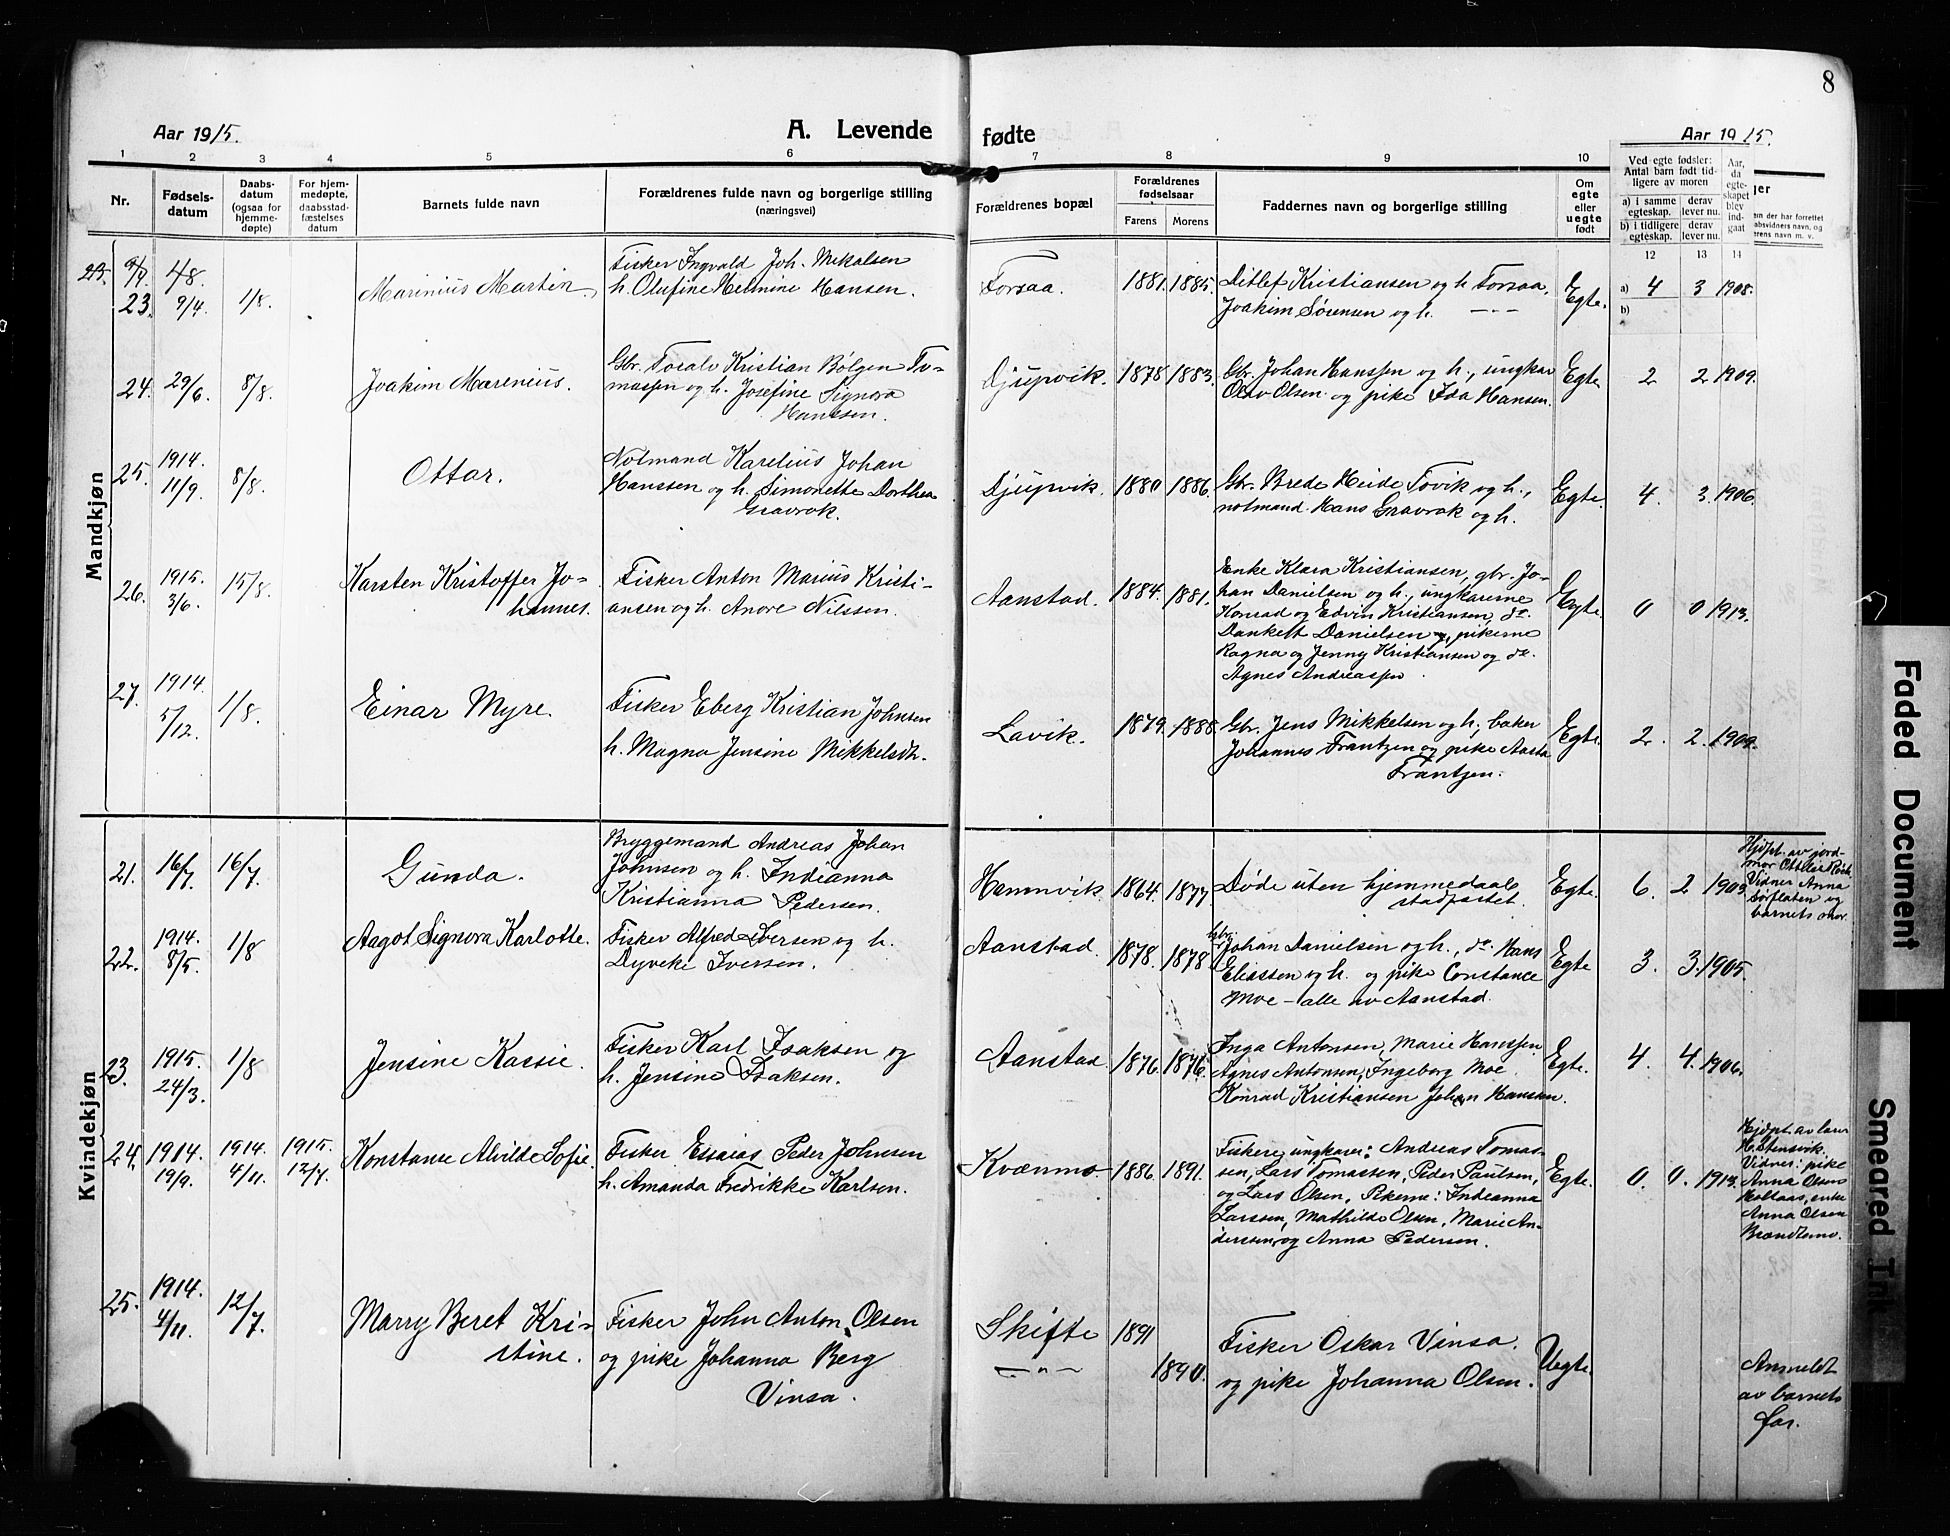 8
Aar 1915.
A. Levende
fødte
Aar 1915.
1 2 3 4 5 6 7 8 9 10
Nr.
Fødsels-
datum
Daabs-
datum
(ogsaa for
hjemme-
døpte)
For hjem-
medøpte,
daabsstad-
fæstelses
datum
Barnets fulde navn
Forældrenes fulde navn og borgerlige stilling
(næringsvei)
Forældrenes bopæl
Forældrenes
fødselsaar
Farens
Morens
Faddernes navn og borgerlige stilling
Om
egte
eller
uegte
født
Ved egte fødsler:
Antal barn født tid-
ligere av moren
a) i samme
egteskap.
derav
lever nu.
b) i tidligere
egteskap.
derav
lever nu.
Aar,
da
egte-
skapet
blev
ind-
gaat
12 13 14
Mandkjøn
23. 9/4 1/8.
Marinius Martin.
Fisker Ingvald Joh. Mikalsen
h. Olufine Helmine Hansen.
Forsaa.
1881. 1885.
Ditlef Kristiansen og h Forsaa,
Joakim Sørensen og h. — " —
Egte.
a) 4 3 1908.
b)
24. 29/6. 8/8.
Joakim Marenius.
Gbr. Tosalv Kristian Bølgen To-
massen og h. Josefine Signora
Hanssen.
Djupvik.
1878 1883.
Gbr. Johan Hanssen og h., ungkar
Olav Olsen og pike Ida Hansen.
Egte
2 2 1909.
25. 1914. 11/9. 8/8.
Ottar.
Notmand Karelius Johan
Hanssen og h. Simonette Dorthea
Gravrok.
Djupvik.
1880 1886.
Gbr. Brede Heide Tovik og h.,
notmand Hans Gravrok og h.
Egte.
4. 3. 1906.
26. 1915. 3/6. 15/8.
Karsten Kristoffer Jo-
hannes.
Fisker Anton Marius Kristi-
ansen og h. Anore Nilssen.
Aanstad.
1884. 1881.
Enke Klara Kristiansen, gbr. Jo-
han Danielsen og h., ungkarerne
Konrad og Edvin Kristiansen, do.
Dankert Danielsen og pikerne
Ragna og Jenny Kristiansen og do.
Agnes Andreassen.
Egte.
0 0 1913.
27. 1914. 5/12. 1/8.
Einar Myre.
Fisker Eberg Kristian Johnsen
h. Magna Jensine Mikkelsdtr.
Lavik.
1879. 1888.
Gbr. Jens Mikkelsen og h., baker
Johannes Frantzen og pike Aasta
Frantzen.
Egte.
2. 2. 1909.
Kvindekjøn
21. 16/7. 16/7.
Gunda.
Bryggemand Andreas Johan
Johnsen og h. Indianna
Kristianna Pedersen.
Hamnvik.
1864. 1877.
Døde uten hjemmedaabs
stadfæstet.
Egte.
6. 2 1903.
Hjdpt. av jord-
mor
Vidner Anna
Sørflaten og
barnets mor.
22. 1914. 8/5. 1/8
Aagot Signora Karlotte.
Fisker Alfred Iversen og h.
Dyveke Iversen.
Aanstad.
1878. 1878
Gbr. Johan Danielsen og h., do. Hans
Eliassen og h. og pike Constance
Moe — alle av Aanstad.
Egte
3. 3. 1905.
23. 1915. 24/3. 1/8
Jensine Kassie.
Fisker Karl Isaksen og
h. Jensine Isaksen.
Aanstad.
1876. 1876.
Inga Antonsen, Marie Hanssen
Agnes Antonsen, Ingeborg Moe.
Konrad Kristiansen Johan Hanssen.
Egte.
4. 4. 1906.
24. 1914. 19/9. 1914. 4/11. 1915. 12/7.
Konstance Alvilde Sofie.
Fisker Essaias Peder Johnsen
h. Amanda Fredrikke Karlsen.
Kvænmo.
1886. 1891.
Fiskere, ungkarer: Andreas Tomas-
sen, Lars Tomassen, Peder Paulsen,
og Lars Olsen, Pikerne: Indianna
Larssen, Mathilde Olsen, Marie An-
derssen og Anna Pedersen.
Egte.
0. 0. 1913.
Hjdpt. av lærer
H. Stensvik.
Vidner: pike
Anna Olsen
Holtaas, enke
Anna Olsen
Brandtmo.
25. 1914. 4/11. 12/7.
Marry Beret Kri-
stine.
Fisker John Anton Olsen
og pike Johanna Berg
Vinsa.
Skifte
— " —
1891
1890.
Fisker Oskar Vinsa.
og pike Johanna Olsen.
Uegte.
Anmeldt
av barnets
far.
Faded Document
Smeared Ink